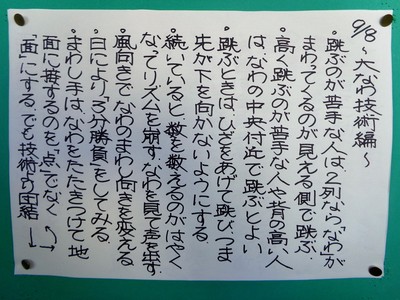 9/8 〜大なわ技術編〜
・跳ぶのが苦手な人は、2列なら「なわ」が
まわってくるのが見える側で跳ぶ.
・高く跳ぶのが苦手な人や背の高い人
は、なわの中央付近で跳ぶとよい
・跳ぶときは、ひざをあげて跳び、つま
先が下を向かないようにする
・続いていると、数を数えるのがはやく
なってリズムを崩す。なわを見て声を出す.
・風向きでなわのまわし向きを変える
・日により、3分勝負をしてみる.
・まわし手は、なわをたたきつけて地
面に接するのを「点」でなく
「面」にする。でも技術より団結